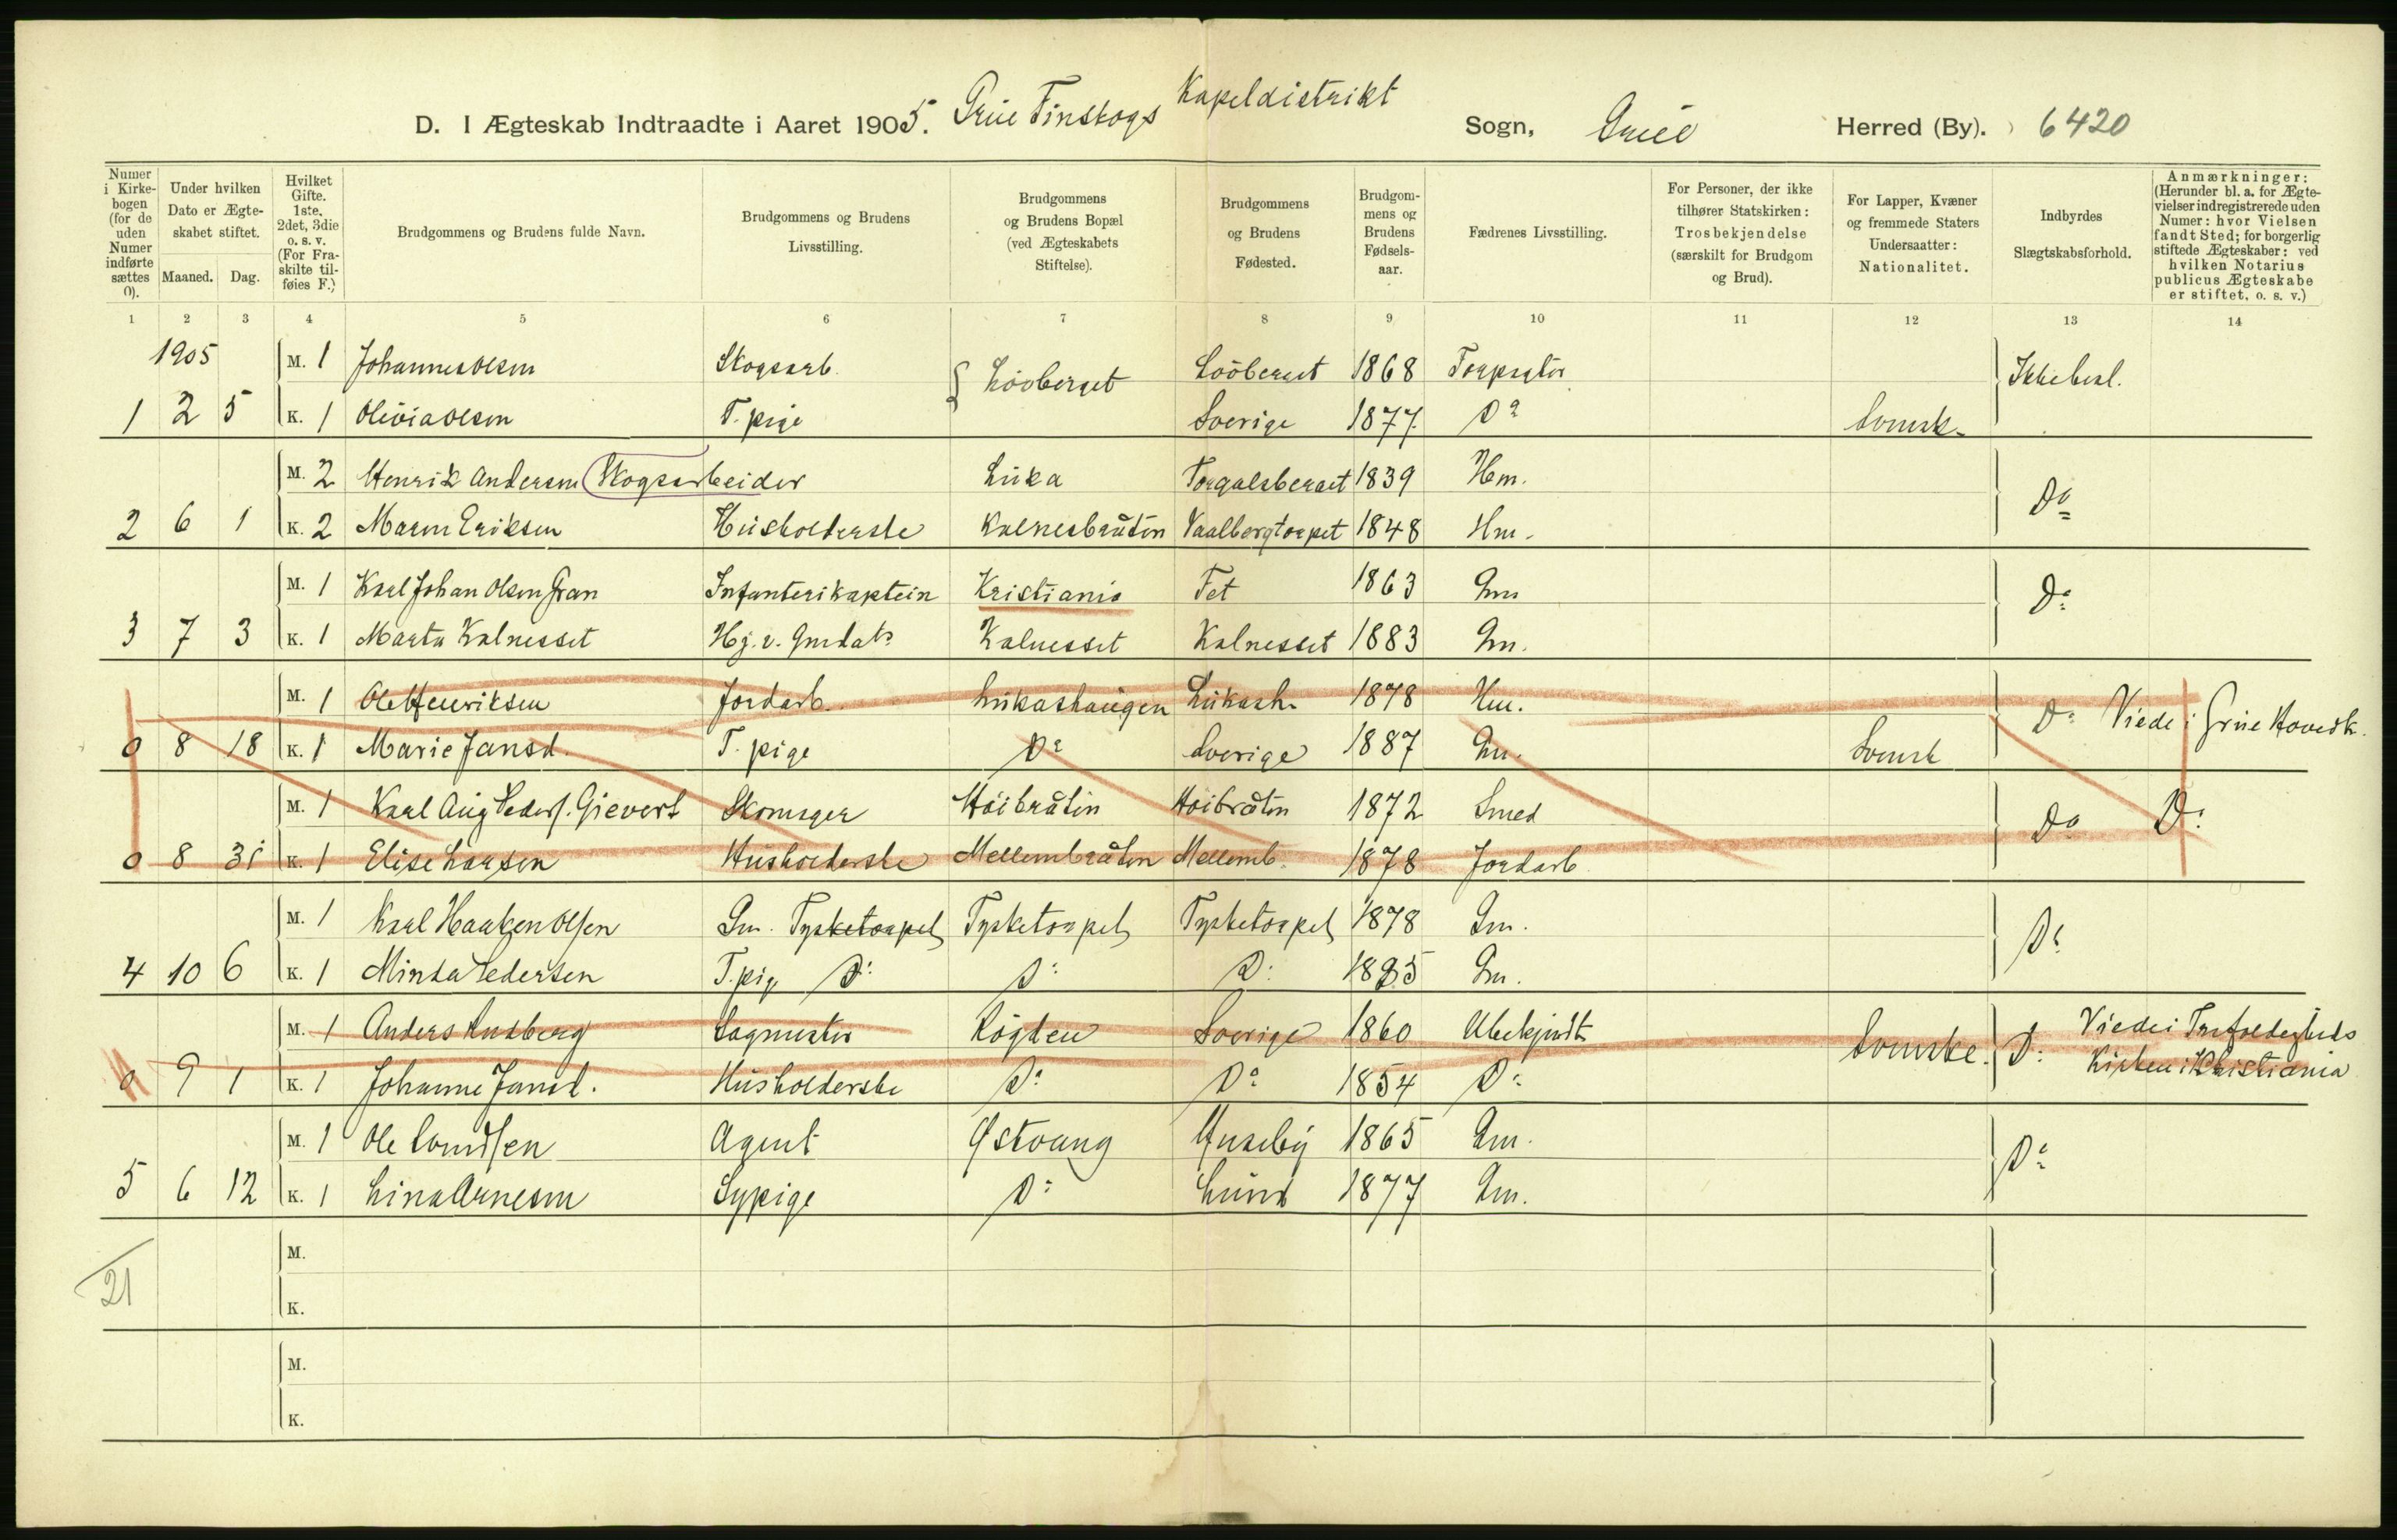 D. I Ægteskab Indtraadte i Aaret 1905. Grue Finskogs Kapeldistrikt Sogn, Grue Herred (By). 6420
Numer i Kirkebogen (for de uden Numer indførte sættes 0).
Under hvilken Dato er Ægteskabet stiftet.
Maaned. Dag.
Hvilket Gifte. 1ste, 2det, 3die o. s. v. (For Fraskilte tilføies F.)
Brudgommens og Brudens fulde Navn.
Brudgommens og Brudens Livsstilling.
Brudgommens og Brudens Bopæl (ved Ægteskabets Stiftelse).
Brudgommens og Brudens Fødested.
Brudgommens og Brudens Fødselsaar.
Fædrenes Livsstilling.
For Personer, der ikke tilhører Statskirken: Trosbekjendelse (særskilt for Brudgom og Brud).
For Lapper, Kvæner og fremmede Staters Undersaatter: Nationalitet.
Indbyrdes Slægtskabsforhold.
Anmærkninger: (Herunder bl. a. for Ægtevielser indregistrerede uden Numer: hvor Vielsen fandt Sted; for borgerlig stiftede Ægteskaber: ved hvilken Notarius publicus Ægteskabe er stiftet, o. s. v.)
1 2 3 4 5 6 7 8 9 10 11 12 13 14
1905 M. 1 Johannes Olsen Skogsarb. Lövberget Lööberget 1868 Ikke besl.
1 2 5 K. 1 Olivia Olsen T. pige Sverige 1877 Do Svensk
M. 2 Henrik Andersen Skogsarbeider Luka 1839 Hm. Do
2 6 1 K. 2 Maren Eriksen Husholderske Kalnesbråten Vaalbergtorpet 1848 Hm.
M. 1 Karl Johan Olsen Gran Infanterikaptein Kristiania Fet 1863 Gm Do
3 7 3 K. 1 Marta Kalnesset Hj. v. Kalnesset Kalnesset 1883 Gm.
M. 1 Ole Henriksen Jordarb. Lukashaugen Lukash. 1878 Hm. Do Viede i Grue Hovedk.
0 8 18 K. 1 Marie Jansd. T. pige Do Sverige 1887 Gm. Svensk
M. 1 Karl Aug Peders. Gievert Skomager Höibråten Höibråten 1872 Smed Do Do
0 8 31 K. 1 Elise Larsen Husholderske Mellembråten Mellemb. 1878 Jordarb
M. 1 Karl Haaken Olsen Gm. Tysketorpet Tysketorpet Tysketorpet 1878 Gm. Do
4 10 6 K. 1 Minda Pedersen T. pig. Do Do Do 1885 Gm.
M. 1 Anders Lusberg Sagmester Rögden Sverige 1860 Ubekjendt Svenske. Do Viede i Trefoldigheds
0 9 1 K. 1 Johanne Jansd. Husholderske Do Do 1854 Do Kirken i Kristiania
M. 1 Ole Svendsen Agent Östvang Huseby 1865 Gm. Do
5 6 12 K. 1 Lina Arnesen Sypige Do Lund 1877 Gm.
M.
21
K.
M.
K.